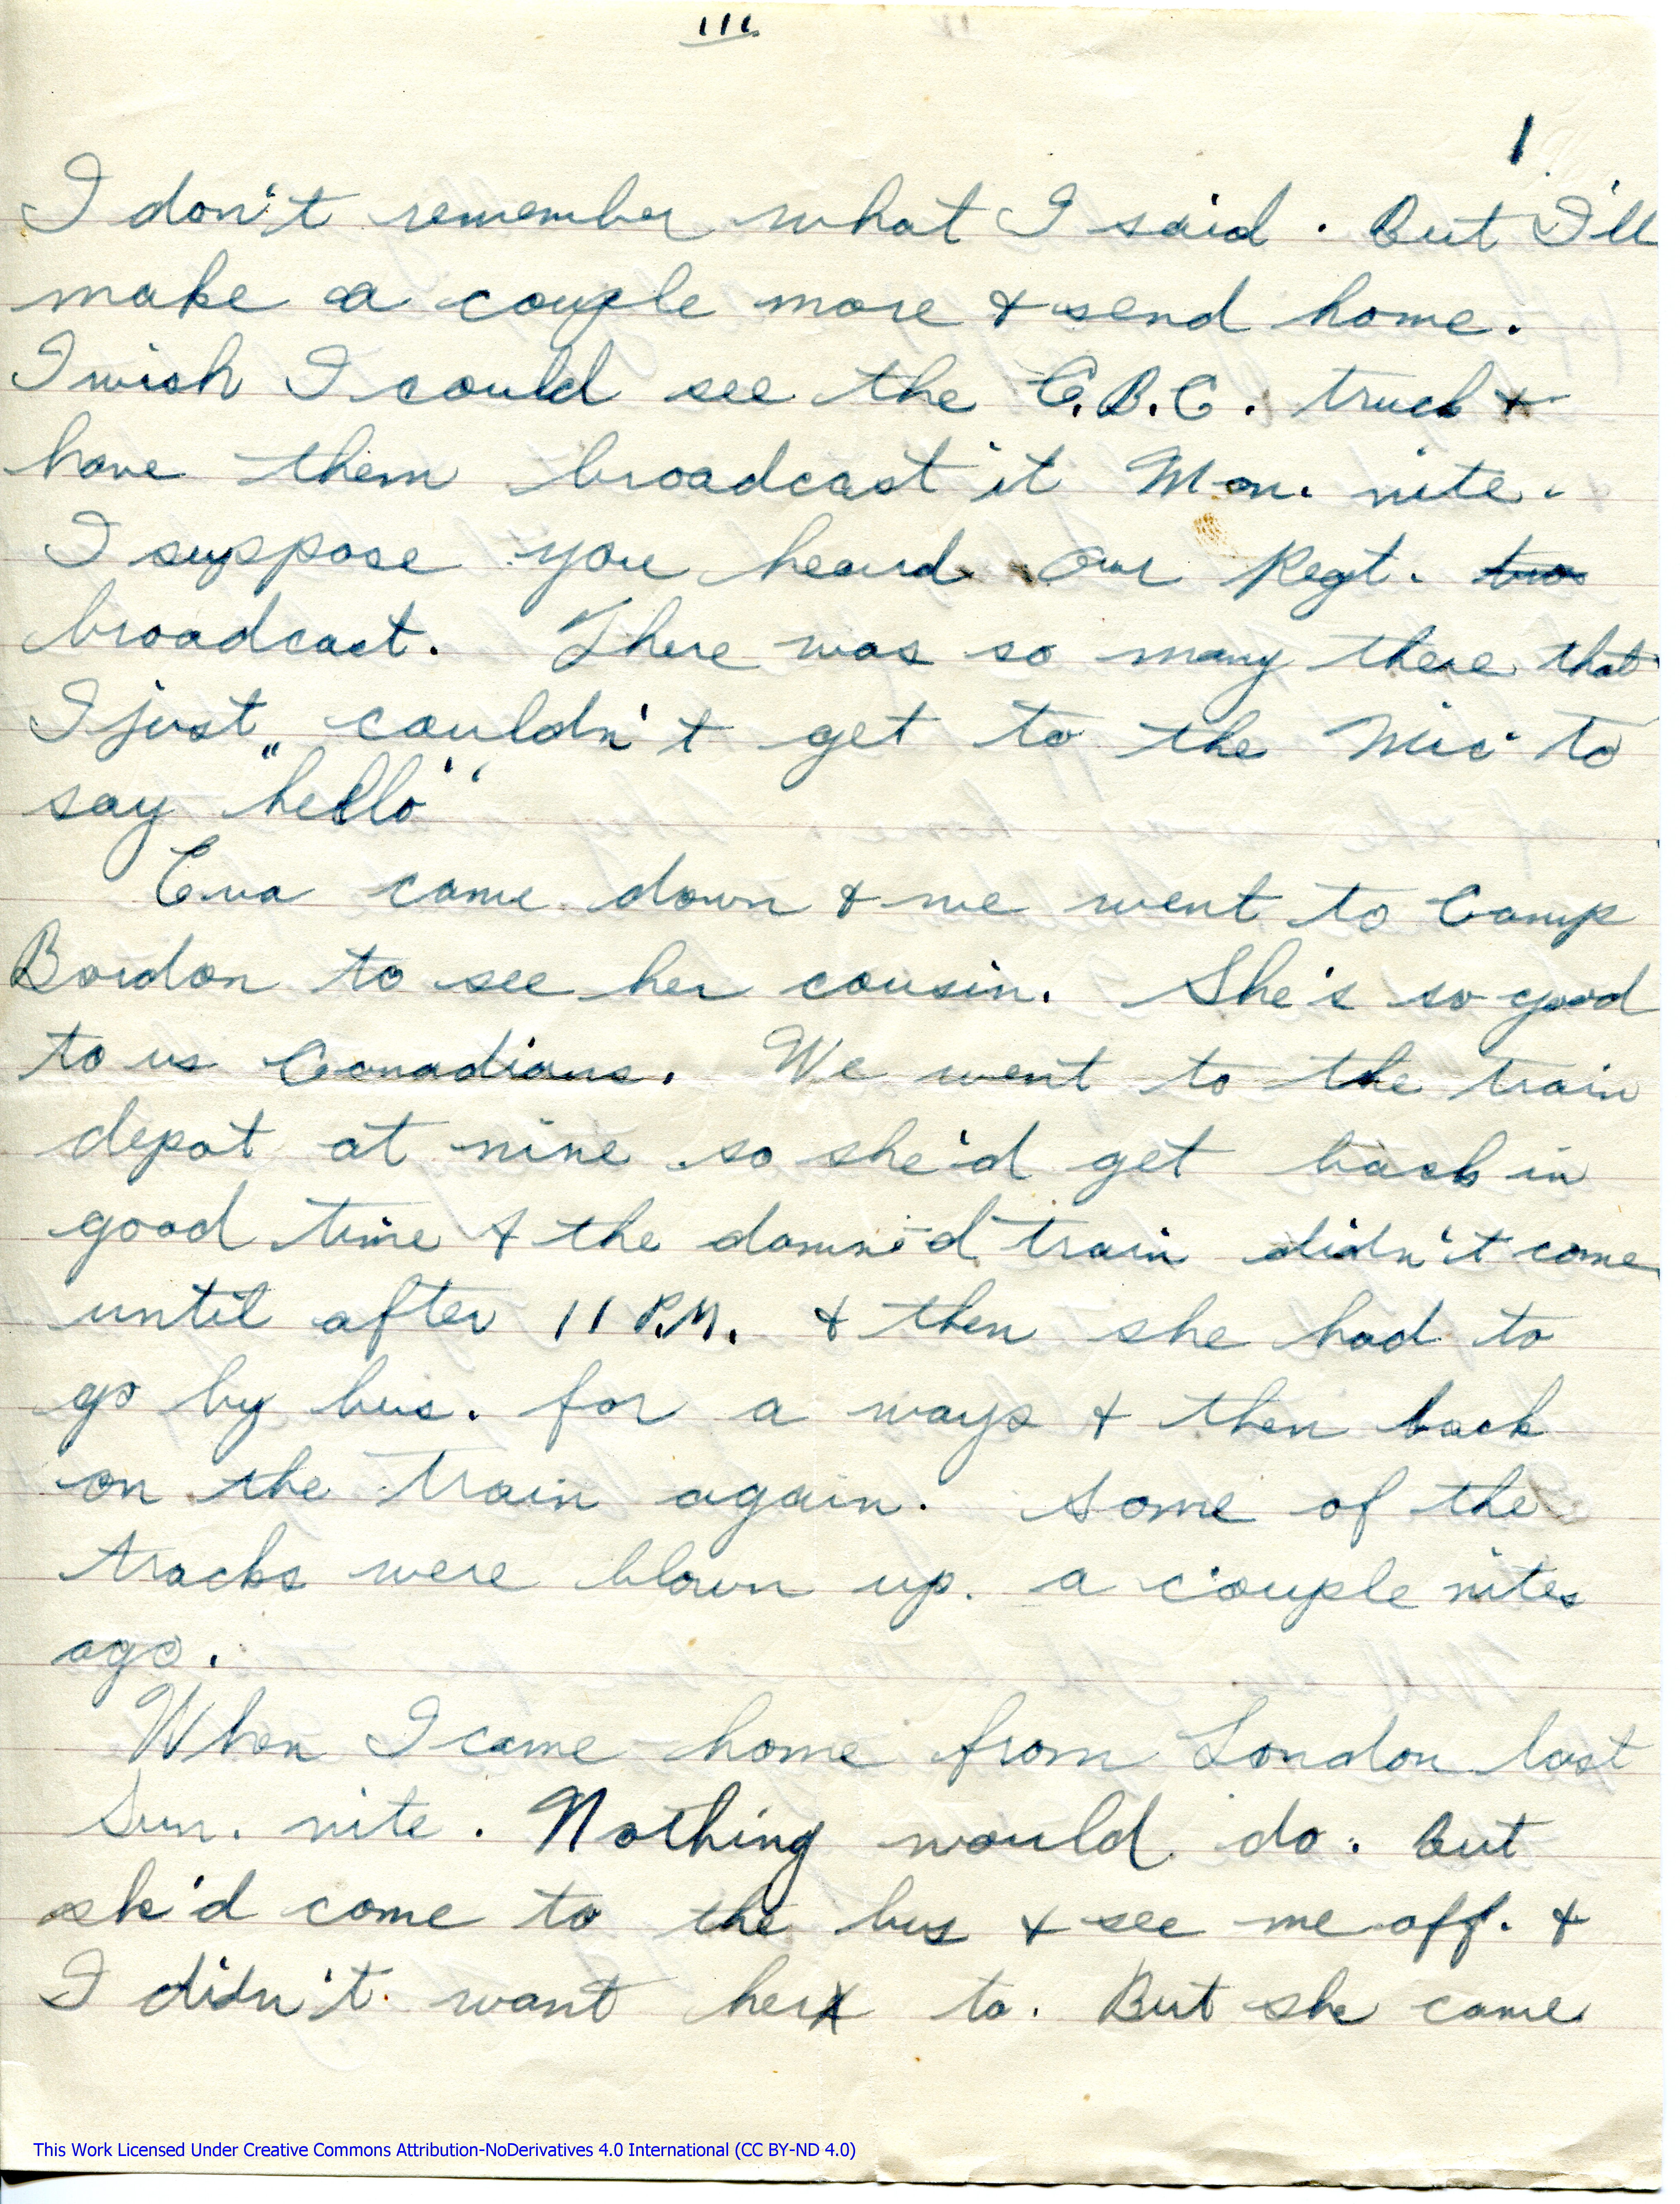 111.
1
I don't remember what I said. But I'll
make a couple more & send home.
I wish I could see the C.B.C. truck &
have them broadcast it Mon. nite.
I suppose you heard our Regt.
broadcast. There was so many there that
I just couldn't get to the Mic to
say "hello"
Eva came down & we went to Camp
Bordon to see her cousin. She's so good
to us Canadians. We went to the train
depot at nine so she'd get back in
good time & the damn'd train didn't come
until after 11 P.M. & then she had to
go by bus. for a ways & then back
on the train again. Some of the
tracks were blown up. a couple nites
ago.
When I came home from London last
Sun. nite. Nothing would do. But
she'd come to the bus & see me off. &
I didn't want her to. But she came
This Work Licensed Under Creative Commons Attribution-NoDerivatives 4.0 International (CC BY-ND 4.0)